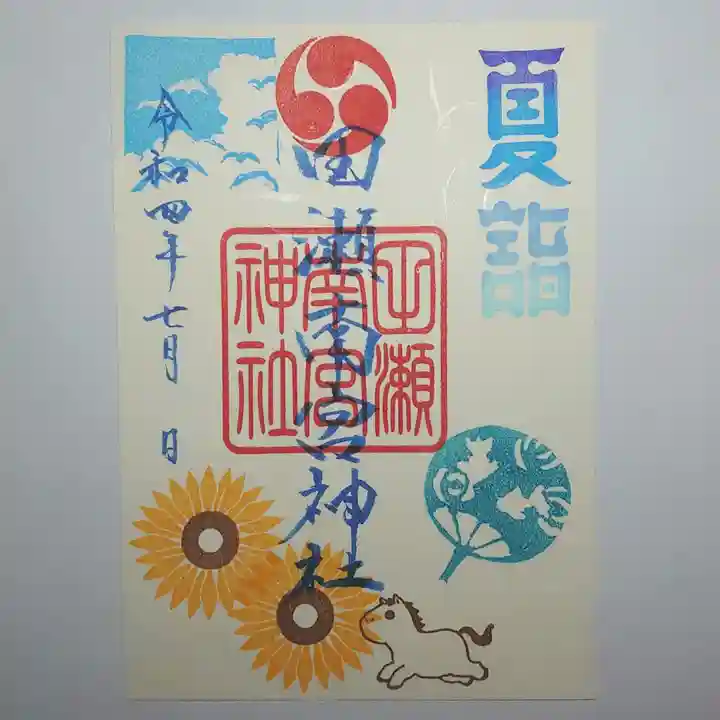 夏詣
田瀬南宮神社
田瀬
南宮
神社
令和四年七月 日